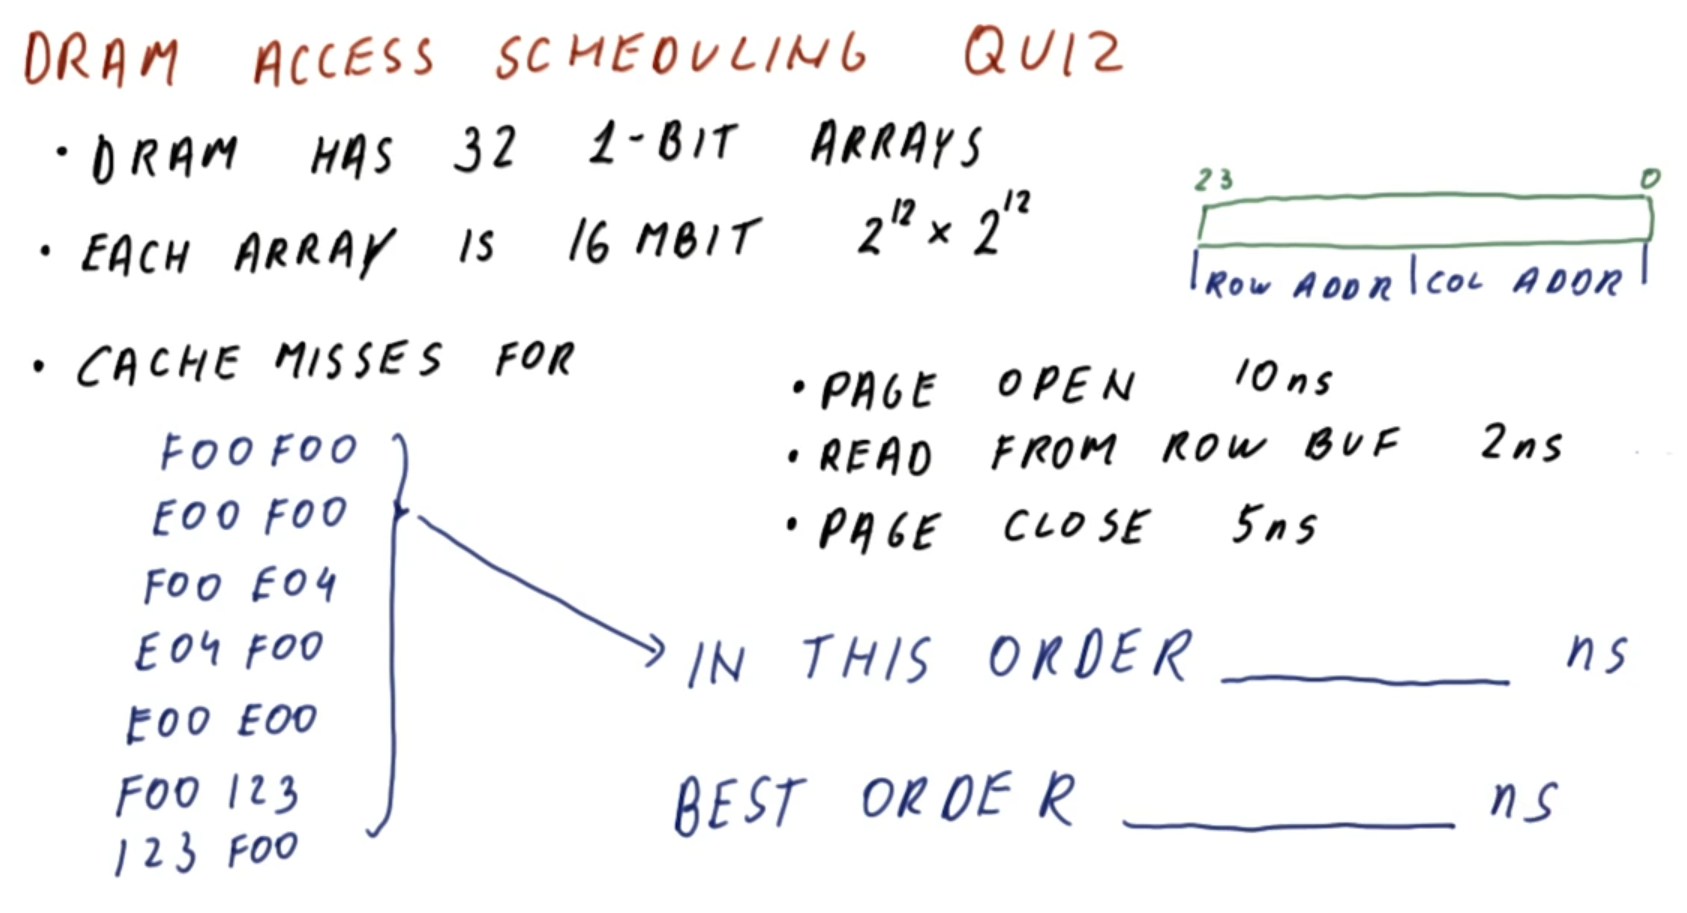 DRAM ACCESS SCHEDULING QUIZ
• DRAM HAS 32 1-BIT ARRAYS
• EACH ARRAY IS 16 MBIT 2^12 × 2^12
23 0
ROW ADDR COL ADDR
• CACHE MISSES FOR
F00 F00
E00 F00
F00 E04
E04 F00
E00 E00
F00 123
123 F00
• PAGE OPEN 10ns
• READ FROM ROW BUF 2ns
• PAGE CLOSE 5ns
IN THIS ORDER ______ ns
BEST ORDER ______ ns